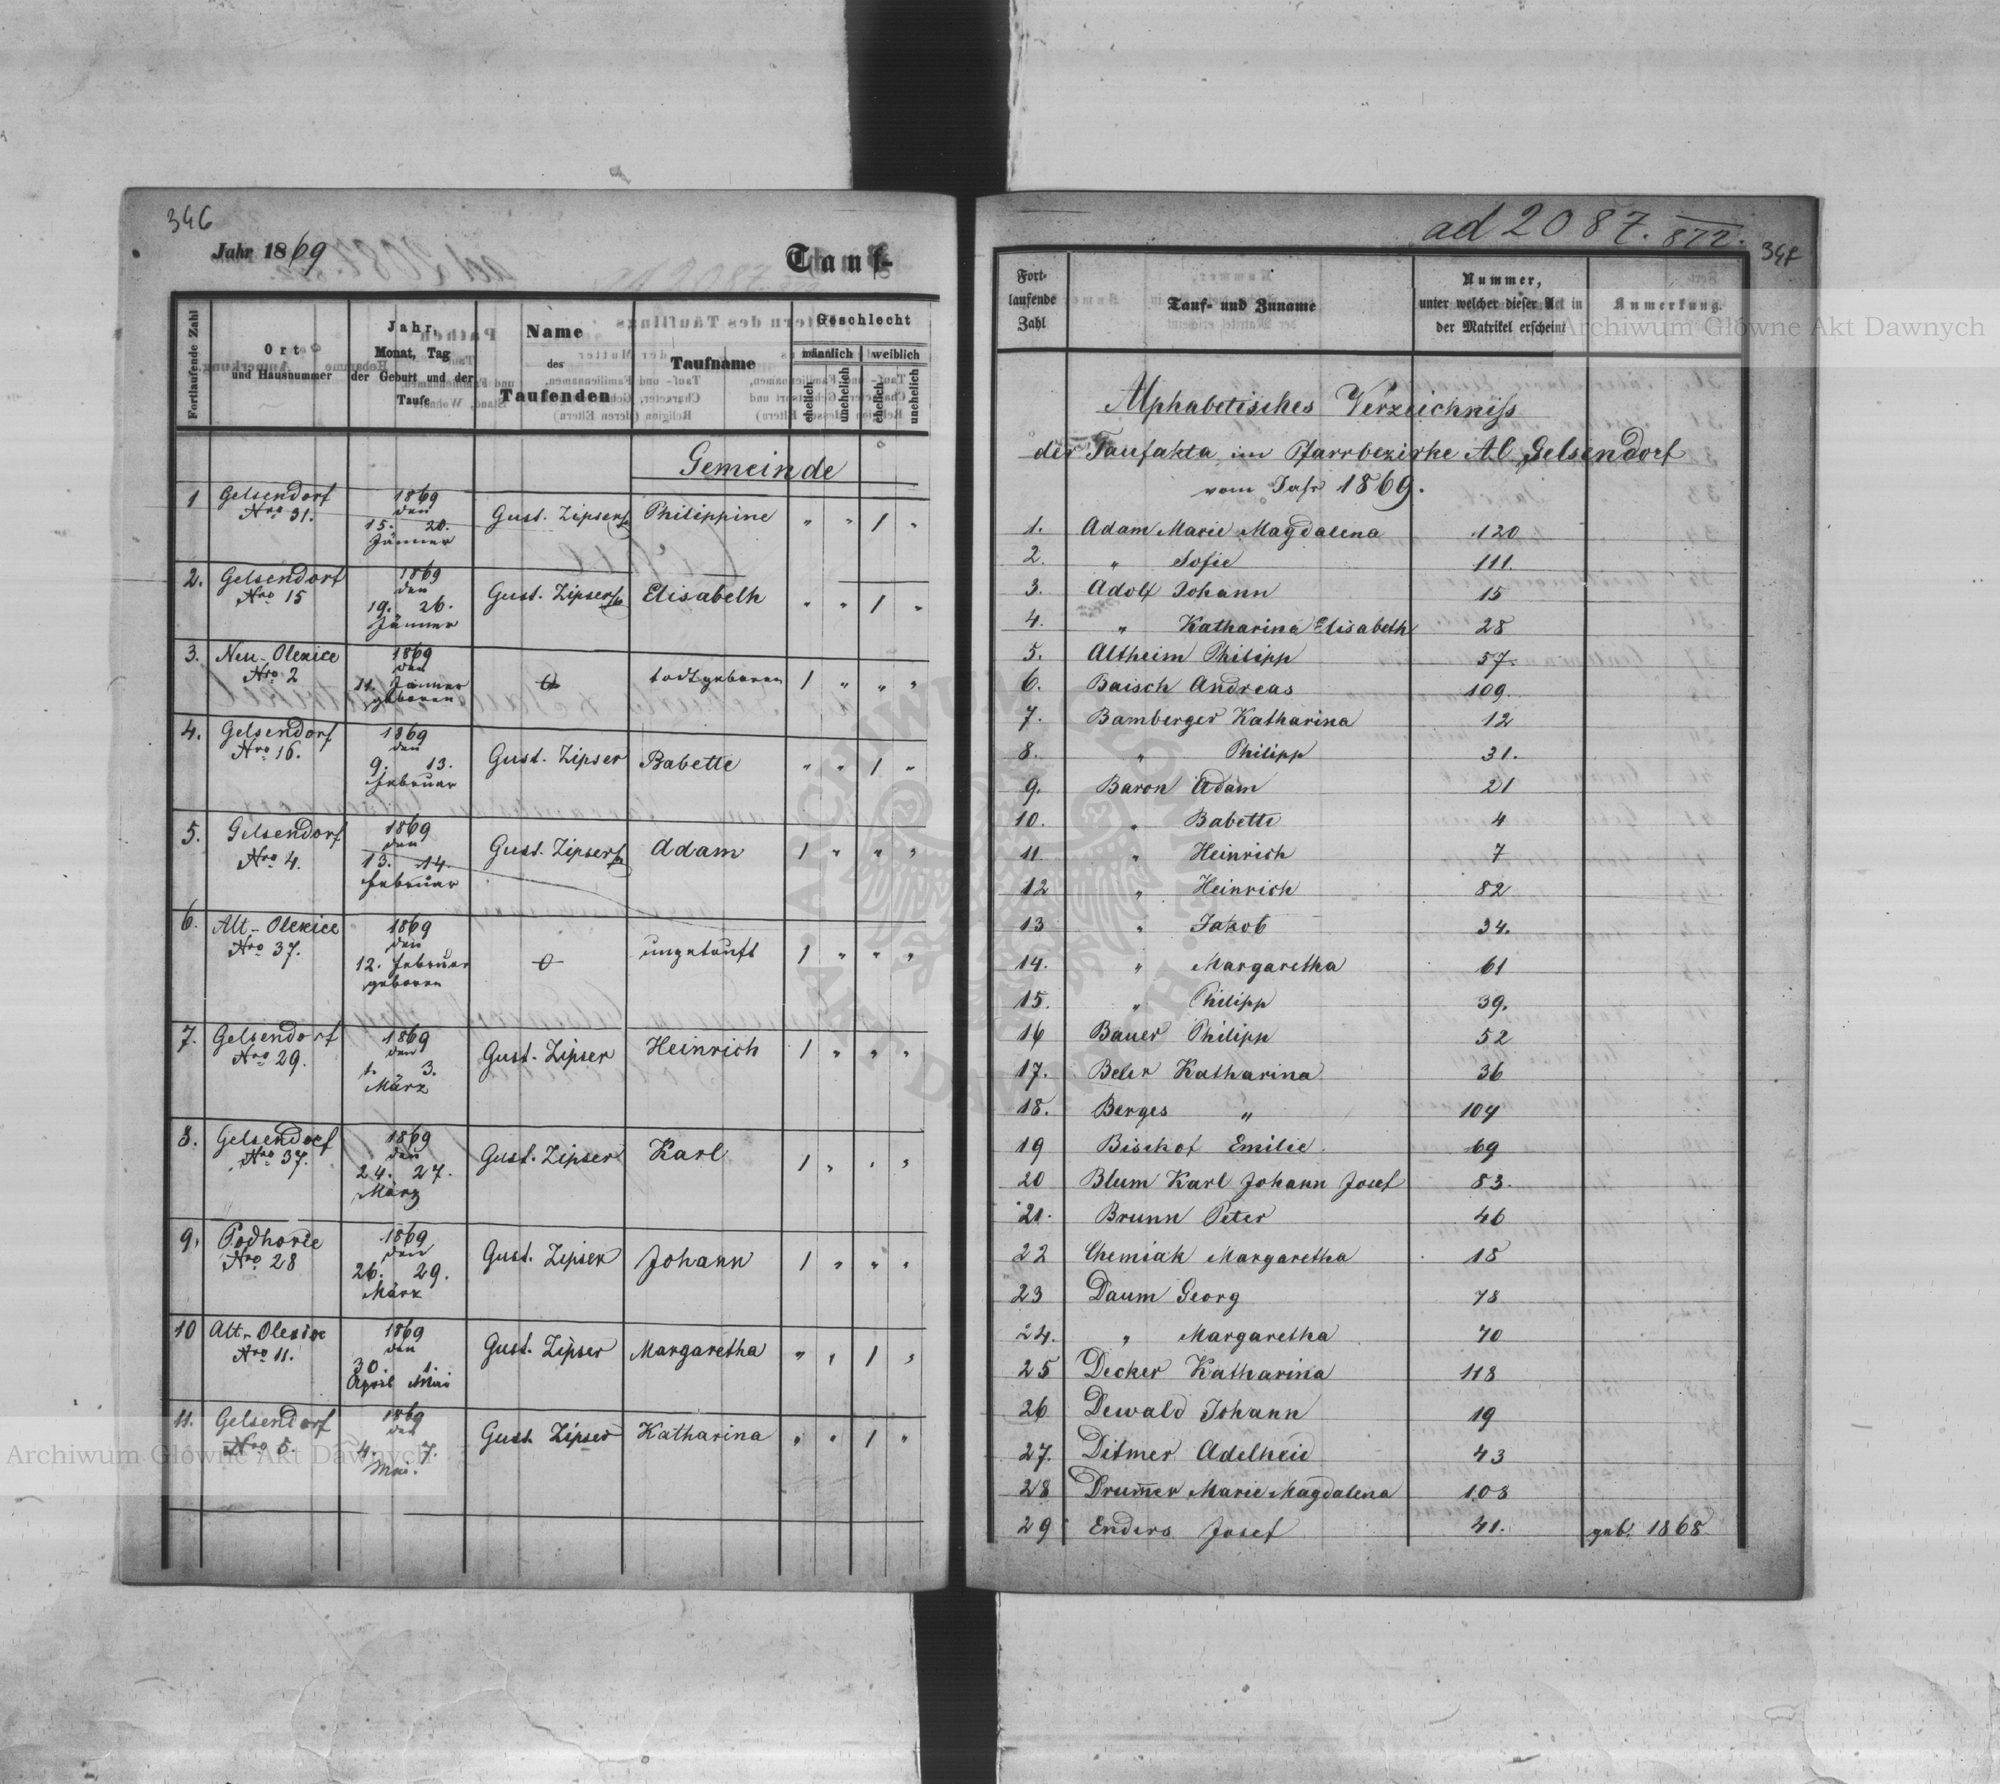 346
Jahr 1869
Tauf-
Fortlaufende Zahl
Ort
und Hausnummer
Jahr,
Monat, Tag
der Geburt und der
Taufe
Name
des
Taufenden
Taufname
Geschlecht
männlich weiblich
ehelich unehelich ehelich unehelich
Gemeinde
1 Gelsendorf Nro 31. 1869 den 15. 20. Jänner Gust. Zipser Philippine " " 1 "
2. Gelsendorf Nro 15 1869 den 19. 26. Jänner Gust. Zipser Elisabeth " " 1 "
3. Neu-Olexice Nro 2 1869 den 11. Jänner geboren todtgeboren 1 " " "
4. Gelsendorf Nro 16. 1869 den 9. 13. Februar Gust. Zipser Babette " " 1 "
5. Gelsendorf Nro 4. 1869 den 13. 14. Februar Gust. Zipser Adam 1 " " "
6. Alt-Olexice Nro 37. 1869 den 12. Februar geboren ungetauft 1 " " "
7. Gelsendorf Nro 29. 1869 den 1. 3. März Gust. Zipser Heinrich 1 " " "
8. Gelsendorf Nro 37. 1869 den 24. 27. März Gust. Zipser Karl 1 " " "
9. Podhorce Nro 28 1869 den 26. 29. März Gust. Zipser Johann 1 " " "
10 Alt-Olexice Nro 11. 1869 den 30. April 1. Mai Gust. Zipser Margaretha " " 1 "
11. Gelsendorf Nro 5. 1869 den 4. 7. Mai. Gust. Zipser Katharina " " 1 "
ad 2087. 872.
347
Fort-
laufende
Zahl
Tauf- und Zuname
Nummer,
unter welcher dieser Akt in
der Matrikel erscheint
Anmerkung.
Alphabetisches Verzeichniss
der Taufakta im Pfarrbezirke A.C. Gelsendorf
vom Jahr 1869.
1. Adam Marie Magdalena 120
2. " Sofie 111.
3. Adolf Johann 15
4. " Katharina Elisabeth 28
5. Altheim Philipp 57.
6. Baisch Andreas 109.
7. Bamberger Katharina 12
8. " Philipp 31.
9. Baron Adam 21
10. " Babette 4
11. " Heinrich 7
12 " Heinrich 82
13 " Jakob 34.
14. " Margaretha 61
15. " Philipp 39.
16 Bauer Philipp 52
17. Beler Katharina 36
18. Berges " 104
19 Bischof Emilie. 69
20 Blum Karl Johann Josef 83.
21. Brunn Peter 46
22 Chemiak Margaretha 18
23 Daum Georg 78
24. " Margaretha 70
25 Decker Katharina 118
26 Dewald Johann 19
27. Ditmer Adelheid 43
28 Drumer Marie Magdalena 108
29 Enders Josef 41. geb. 1868
Archiwum Główne Akt Dawnych
Archiwum Główne Akt Dawnych